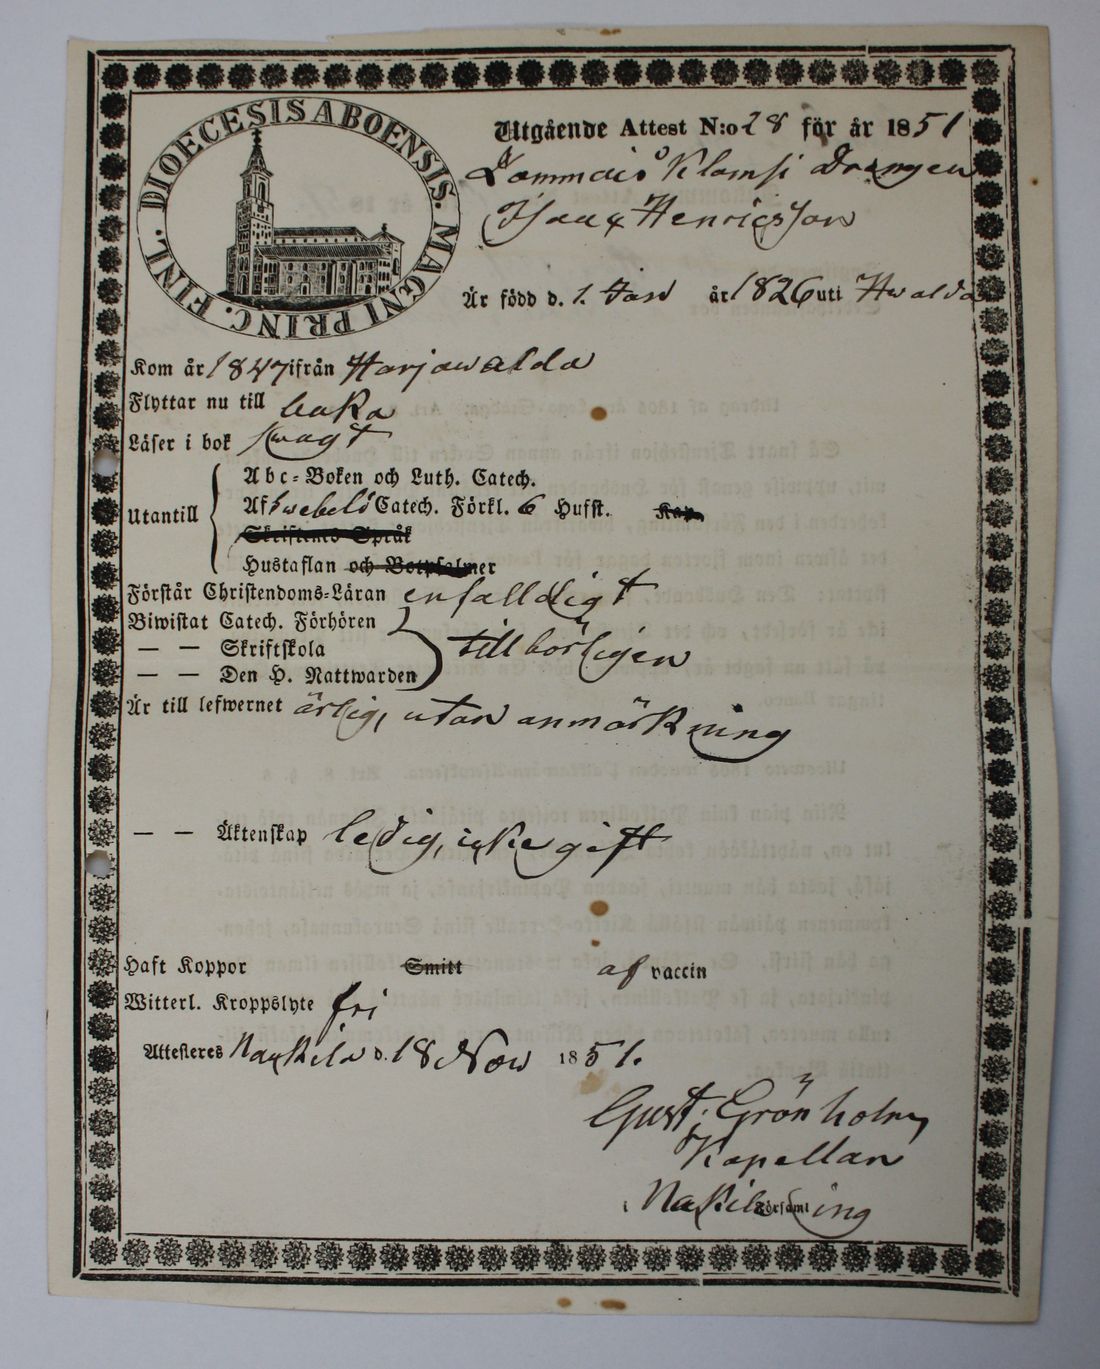 DIOECESIS ABOENSIS. MAGNI PRINC. FINL.
Utgående Attest N:o 28 för år 1851
Lammais Klamsi Drängen
Isaac Henricsson
Är född d. 1. Jan år 1826 uti Hwalda
Kom år 1847 ifrån Harjawalda
Flyttar nu till baka
Läser i bok swagt
Utantill
Abc-Boken och Luth. Catech.
Af Swebels Catech. Förkl. 6 Hufst. Kap.
Skriftens Språk
Hustaflan och Botpsalmer
Förstår Christendoms-Läran enfalldigt
Biwistat Catech. Förhören
— — Skriftskola tillbörligen
— — Den H. Nattwarden
Är till lefwernet ärlig, utan anmärkning
— — Äktenskap ledig, icke gift
Haft Koppor Smitt af vaccin
Witterl. Kroppslyte fri
Attesteres Nackila d. 18 Nov 1851.
Gust. Grönholm
Kapellan
i Nakila Församling